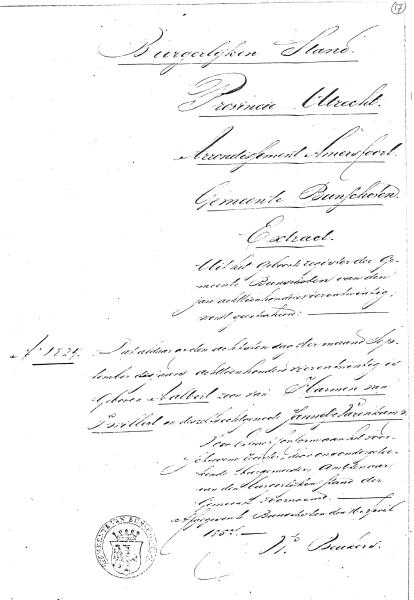 17
Burgerlijken Stand.
Provincie Utrecht.
Arrondissement Amersfoort.
Gemeente Bunschoten.
Extract.
Uit het Geboorteregister der Ge-
meente Bunschoten van den
jare achttienhonderd vierentwintig,
werdt geextraheerd:
Ao 1824.
Dat aldaar op den achtsten dag der maand Sep-
tember des jaars achttienhonderd vierentwintig is
Geboren Aalbert zoon van Harmen van
Twillert en deszelfs echtgenoote Jannetje
Voor Extract conform aan het voor-
schreven register, door ons ondergete-
kende Burgemeester Ambtenaar
van den burgerlijken stand der
Gemeente voornoemd.
Afgegeven Bunschoten den April
185
Beukers.
GEMEENTE VAN BUNSCHOTEN